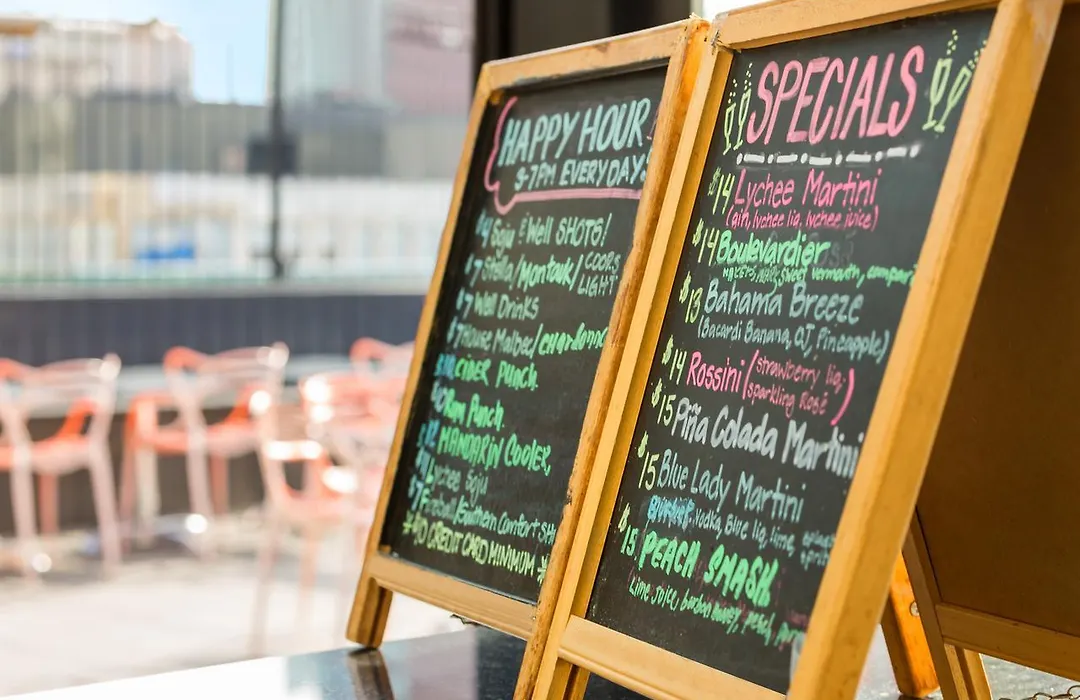 HAPPY HOUR!
3-7PM EVERYDAY!
$4 Soju & Well SHOTS!
$7 Stella/Montauk/COORS LIGHT
$7 Well DRINKS
$7 House Malbec/chardonnay
$10 CIDER PUNCH.
Rum Punch.
MANDARIN COOLER,
Lychee Soju
Fireball, Southern Comfort
CREDIT CARD MINIMUM *
SPECIALS
$14 Lychee Martini
(gin, lychee liq, lychee juice)
$14 Boulevardier
Sweet vermouth,
$13 Bahama Breeze
(Bacardi Banana, OJ, Pineapple)
$14 Rossini (strawberry liq.
sparkling Rosé)
$15 Piña Colada Martini
$15 Blue Lady Martini
vodka, Blue liq, lime,
$15. PEACH SMASH
Lime juice, bourbon